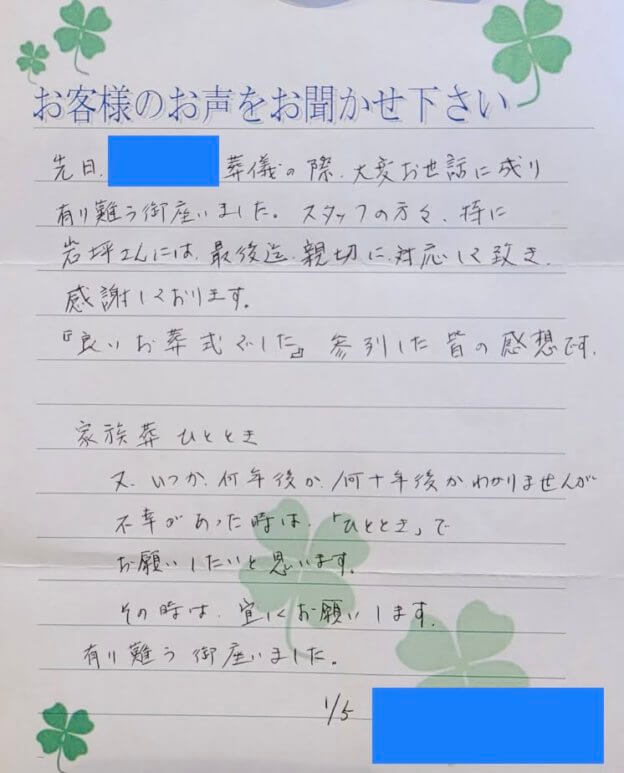 お客様のお声をお聞かせ下さい
先日、葬儀の際、大変お世話に成り
有り難う御座いました。スタッフの方々、特に
岩坪さんには、最後迄、親切に、対応して致き、
感謝しております。
『良いお葬式でした』参列した皆の感想です。
家族葬 ひととき
又、いつか、何年後か、何十年後かわかりませんが
不幸があった時は、「ひととき」で
お願いしたいと思います。
その時は、宜しくお願いします。
有り難う御座いました。
1/5